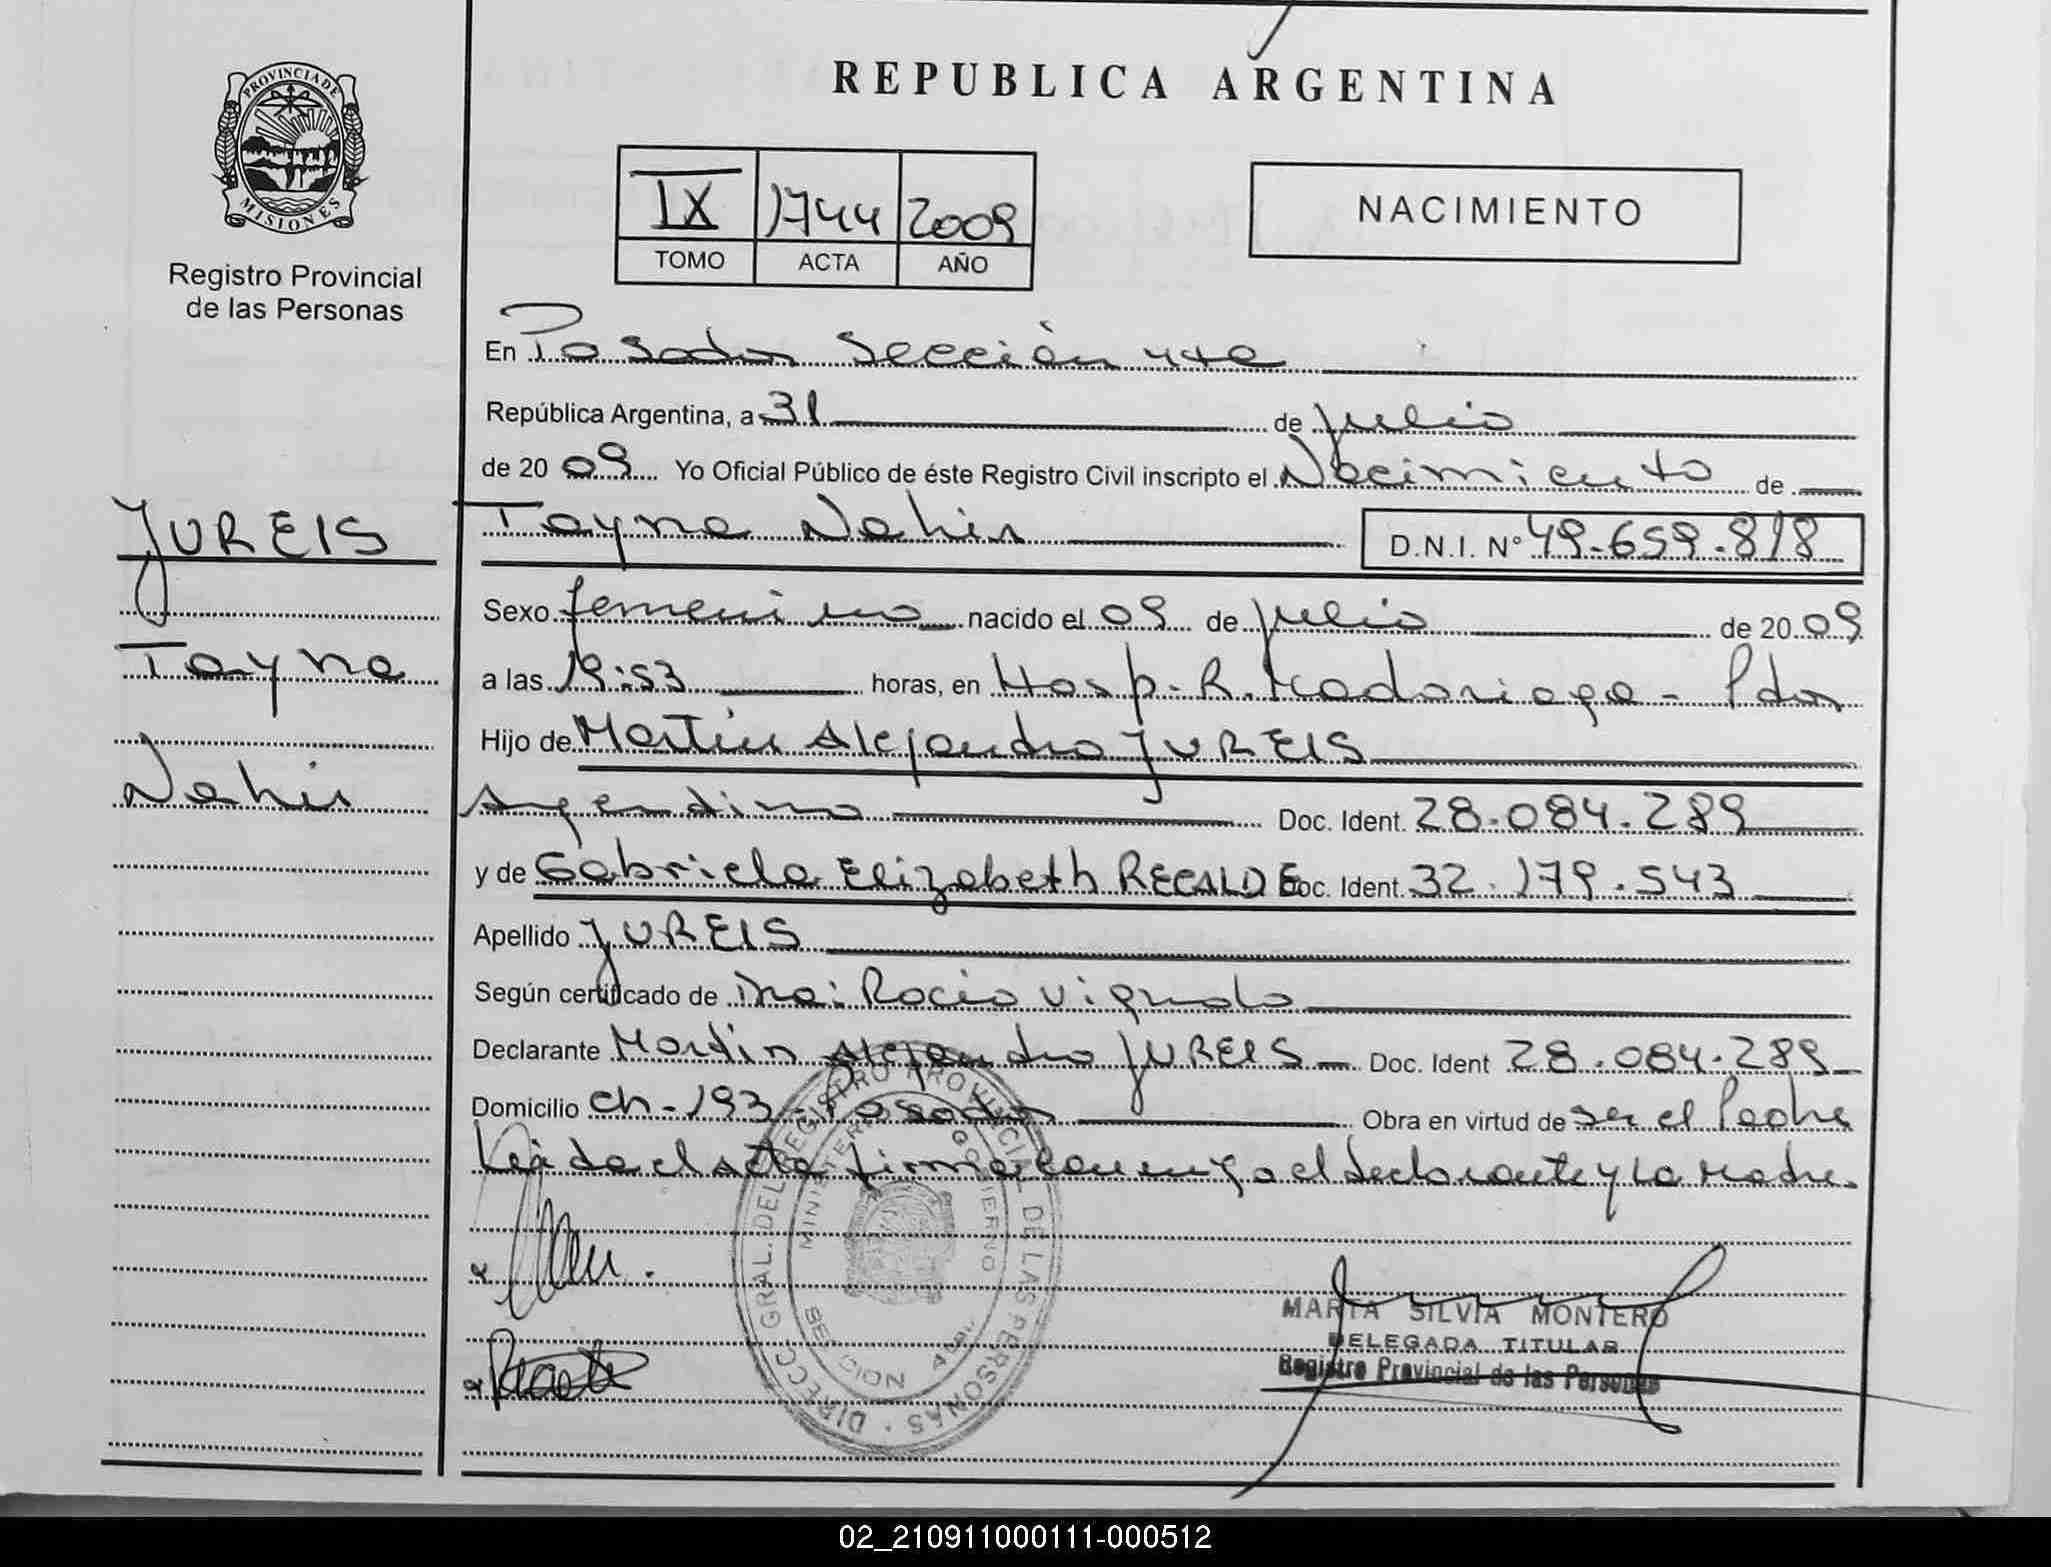 REPUBLICA ARGENTINA
PROVINCIA DE MISIONES
Registro Provincial
de las Personas
IX 1744 2009
TOMO ACTA AÑO
NACIMIENTO
JUREIS
Tayna
Nahir
En Posadas Sección 4ta
República Argentina, a 31 de Julio
de 20 09 Yo Oficial Público de éste Registro Civil inscripto el Nacimiento de
Tayna Nahir D.N.I. Nº 49.659.818
Sexo femenino nacido el 09 de Julio de 20 09
a las 19:53 horas, en Hosp. R. Madariaga - Pdas
Hijo de Martín Alejandro JUREIS
Argentino Doc. Ident. 28.084.289
y de Gabriela Elizabeth RECALDE Doc. Ident. 32.179.543
Apellido JUREIS
Según certificado de Dra: Rocio Vignolo
Declarante Martin Alejandro JUREIS Doc. Ident 28.084.289
Domicilio Ch-193-Posadas Obra en virtud de ser el Padre
Leída el acta firma conmigo el declarante y la Madre.
DIRECC. GRAL. DEL REGISTRO PROVINCIAL DE LAS PERSONAS
MINISTERIO GOBIERNO
MARTA SILVIA MONTERO
DELEGADA TITULAR
Registro Provincial de las Personas
02_210911000111-000512